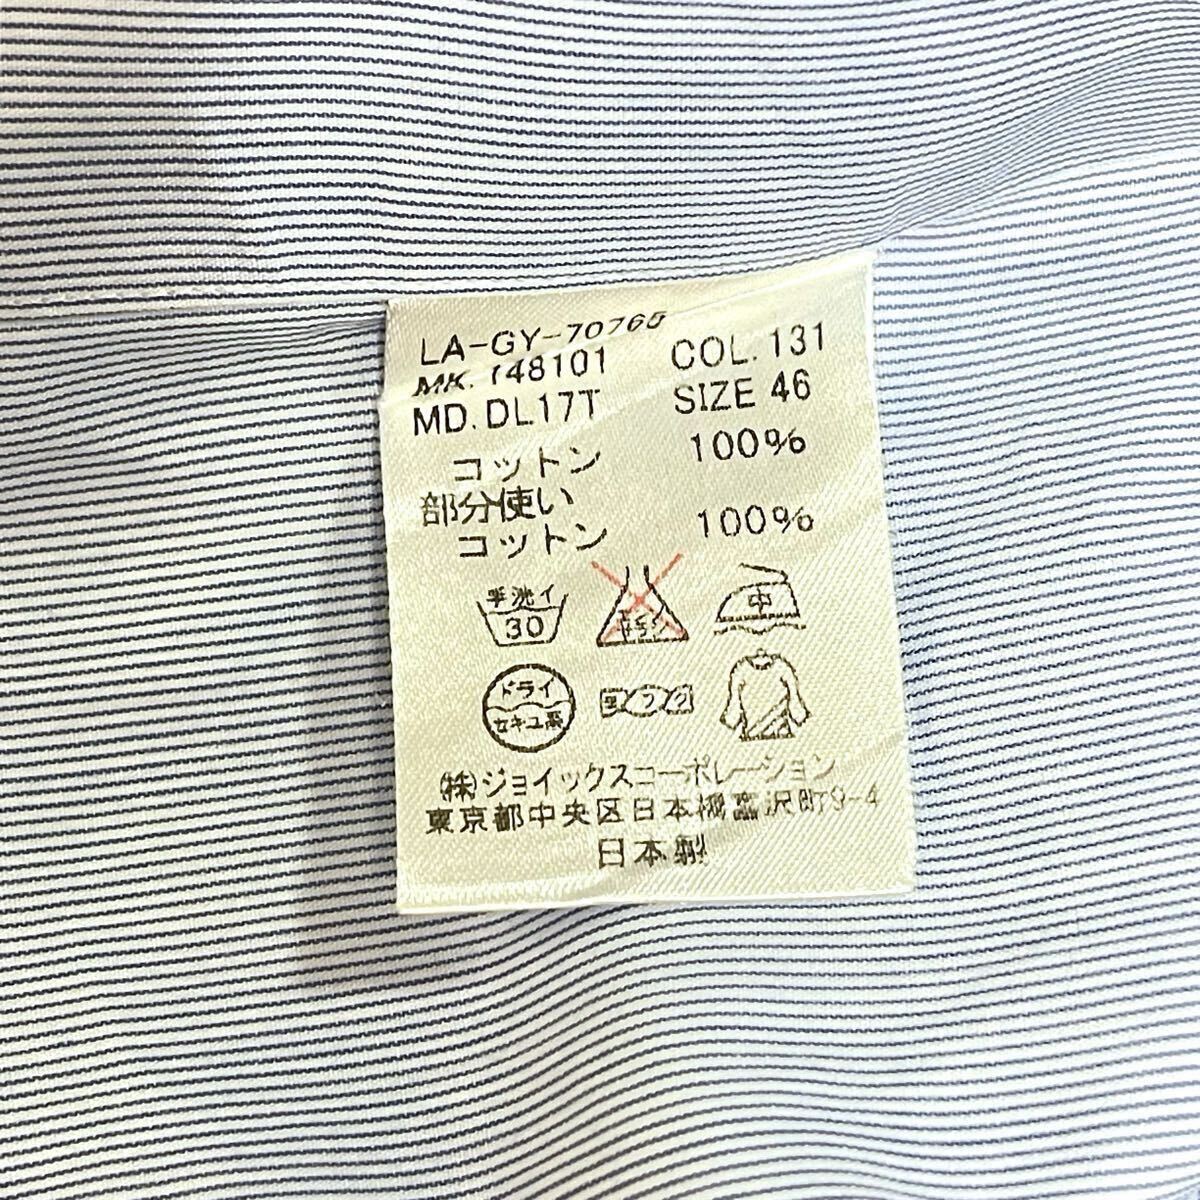 LA-GY-70765
MK. 148101 COL. 131
MD. DL17T SIZE 46
コットン 100%
部分使い
コットン 100%
手洗イ
30
エンソ
中
ドライ
セキユ系
ヨワク
(株)ジョイックスコーポレーション
東京都中央区日本橋富沢町9-4
日本製